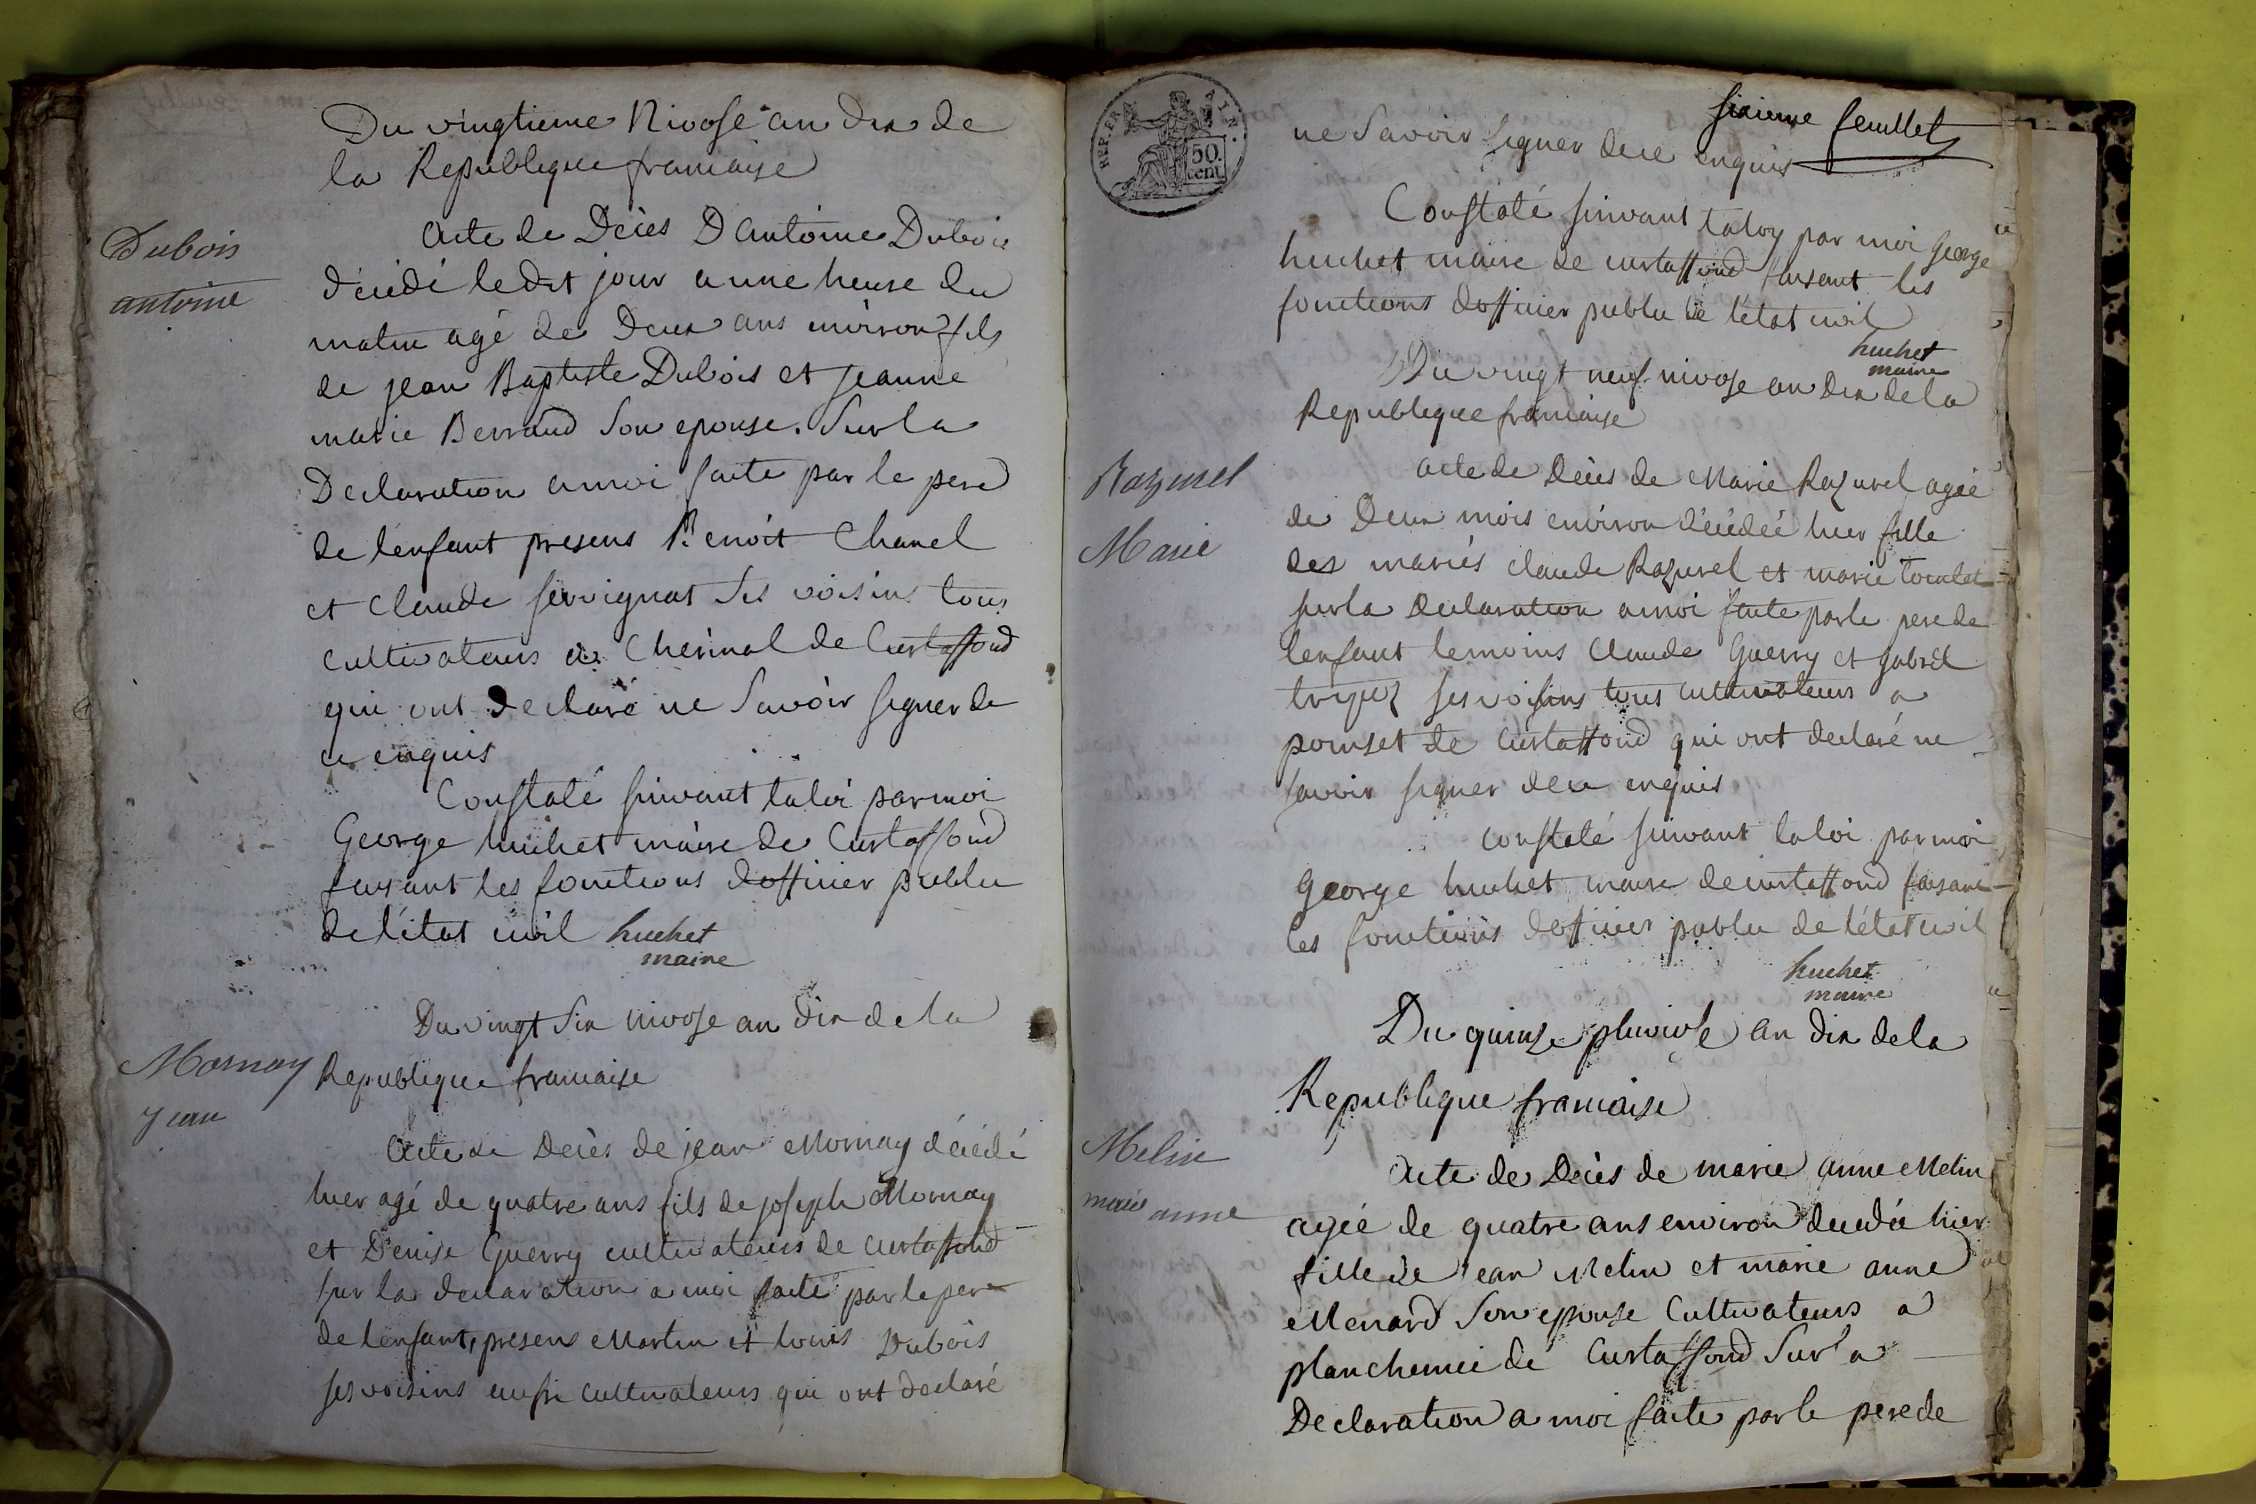 Du vingtieme Nivose an dix de
la Republique francaise
Dubois
antoine
Acte de Décès D'antoine Dubois
décédé ledit jour a une heure du
matin agé de Deux ans environ fils
de jean Baptiste Dubois et jeanne
marie Berraud Son epouse. Sur la
Declaration a moi faite par le pere
de l'enfant presens Benoit Chanel
et Claude servignat Ses voisins tous
Cultivateurs a Cherinal de Curtaffond
qui ont declaré ne Savoir signer de
ce enquis
Constaté suivant la loi par moi
George huchet maire de Curtaffond
faisant les fonctions dofficier public
de l'état civil huchet
maire
Du vingt Six nivose an dix de la
Mornay
jean
Republique francaise
Acte de Décès de jean Mornay décédé
hier agé de quatre ans fils de joseph Mornay
et Denise Guerry cultivateurs de Curtaffond
sur la declaration a moi faite par le pere
de l'enfant, presens Martin et louis Dubois
ses voisins aussi cultivateurs qui ont declaré
sixieme feuillet
REP. FRA. 50. cent.
ne Savoir signer de ce enquis
Constaté suivant la loy par moi George
huchet maire de curtaffond faisant les
fonctions dofficier public de l'état civil
huchet
maire
Du vingt neuf nivose an dix de la
Republique francaise
Razurel
Marie
acte de Décès de Marie Razurel agée
de Deux mois environ décédée hier fille
des mariés claude Razurel et marie
sur la Declaration a moi faite par le pere de
lenfant temoins Claude Guerry et gabriel
ses voisins tous cultivateurs a
pomset de curtaffond qui ont declaré ne
savoir signer de ce enquis
constaté suivant la loi par moi
George huchet maire de curtaffond faisant
les fonctions dofficier public de l'état civil
huchet
maire
Du quinze pluviose an dix de la
Republique francaise
Melin
marie anne
Acte de Décès de marie anne Melin
agée de quatre ans environ decedée hier
fille de jean Melin et marie anne
Menard Son epouse Cultivateurs a
de Curtaffond Sur la
Declaration a moi faite par le pere de